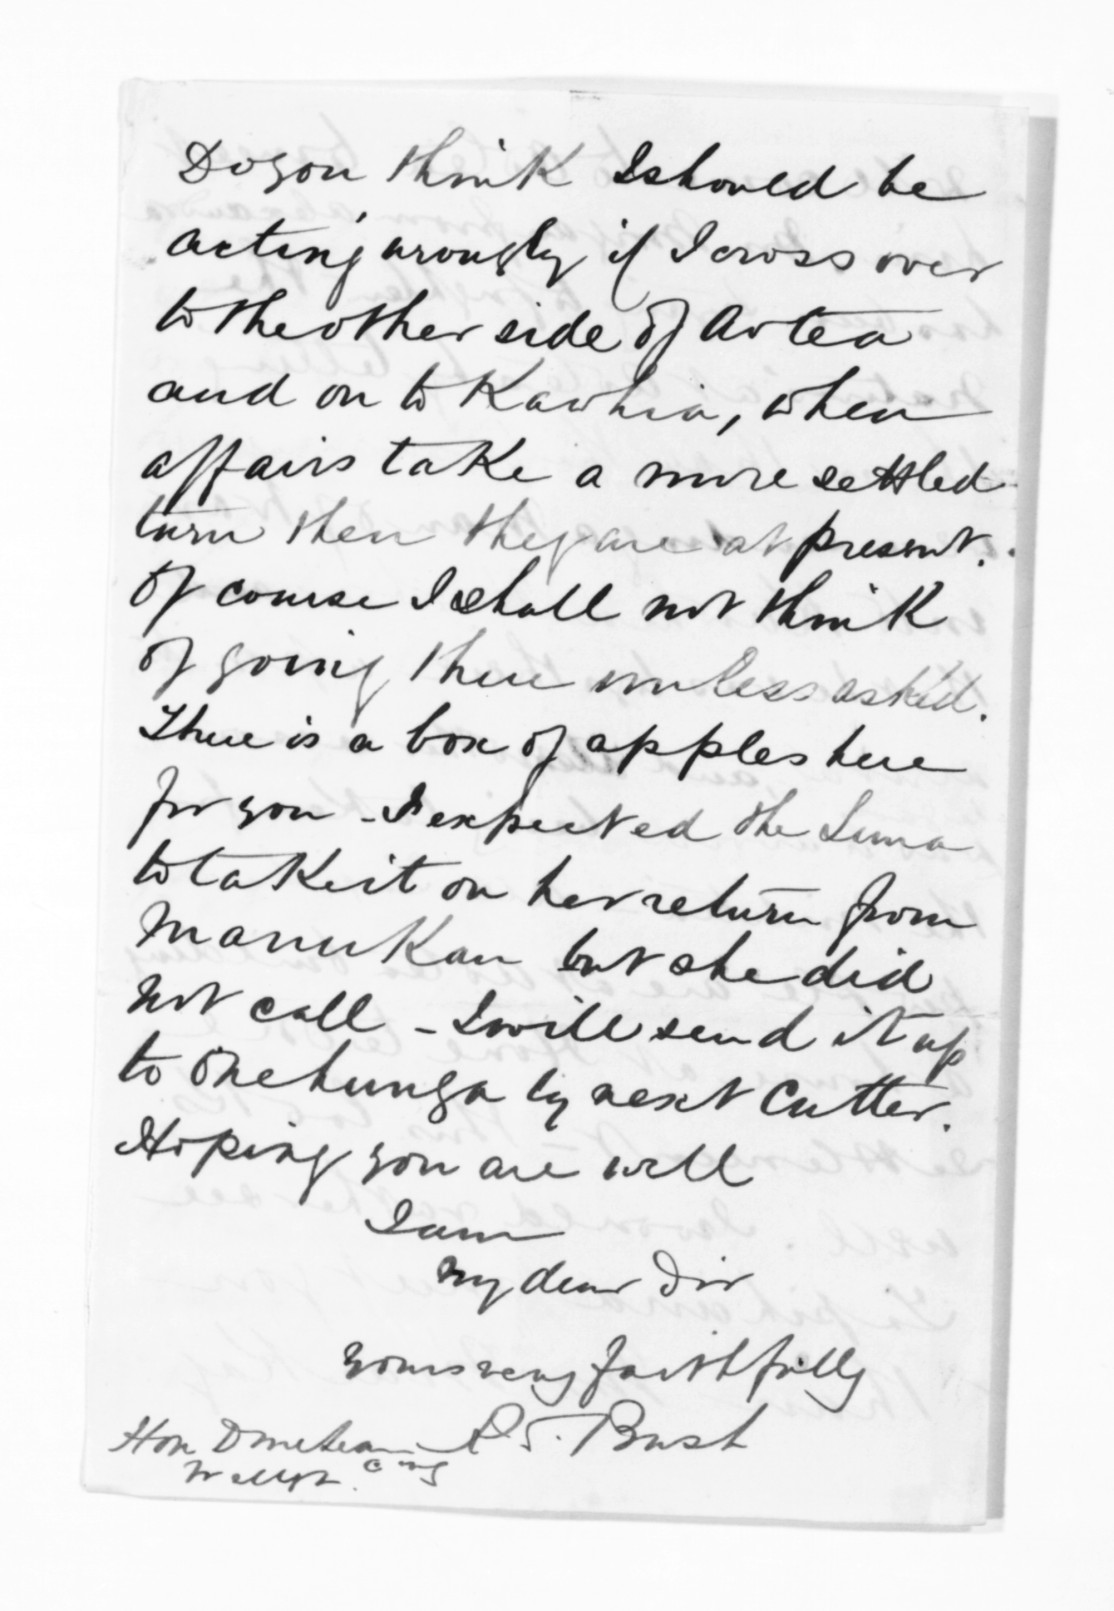 Do you think I should be
acting wrongly if I cross over
to the other side of Aotea
and on to Kawhia, when
affairs take a more settled
turn then they are at present.
Of course I shall not think
of going there unless asked.
There is a box of apples here
for you - I expected the Luna
to take it on her return from
Manukau but she did
not call - I will send it up
to Onehunga by next Cutter.
Hoping you are well
I am
My dear Sir
yours very faithfully
R. S. Bush
Hon D McLean